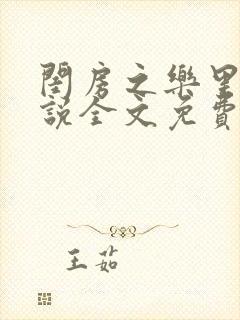 閨房之樂里
說全文免費
王茹